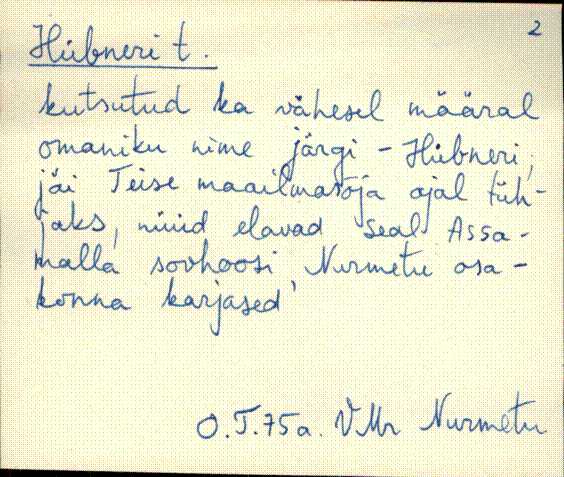 2
Hübneri t.
kutsutud ka vähesel määral
omaniku nime järgi - Hübneri,
jäi Teise maailmasõja ajal tüh-
jaks, nüüd elavad seal Assa-
malla sovhoosi Nurmetu osa-
konna karjased'
O.T.75a. VMr Nurmetu